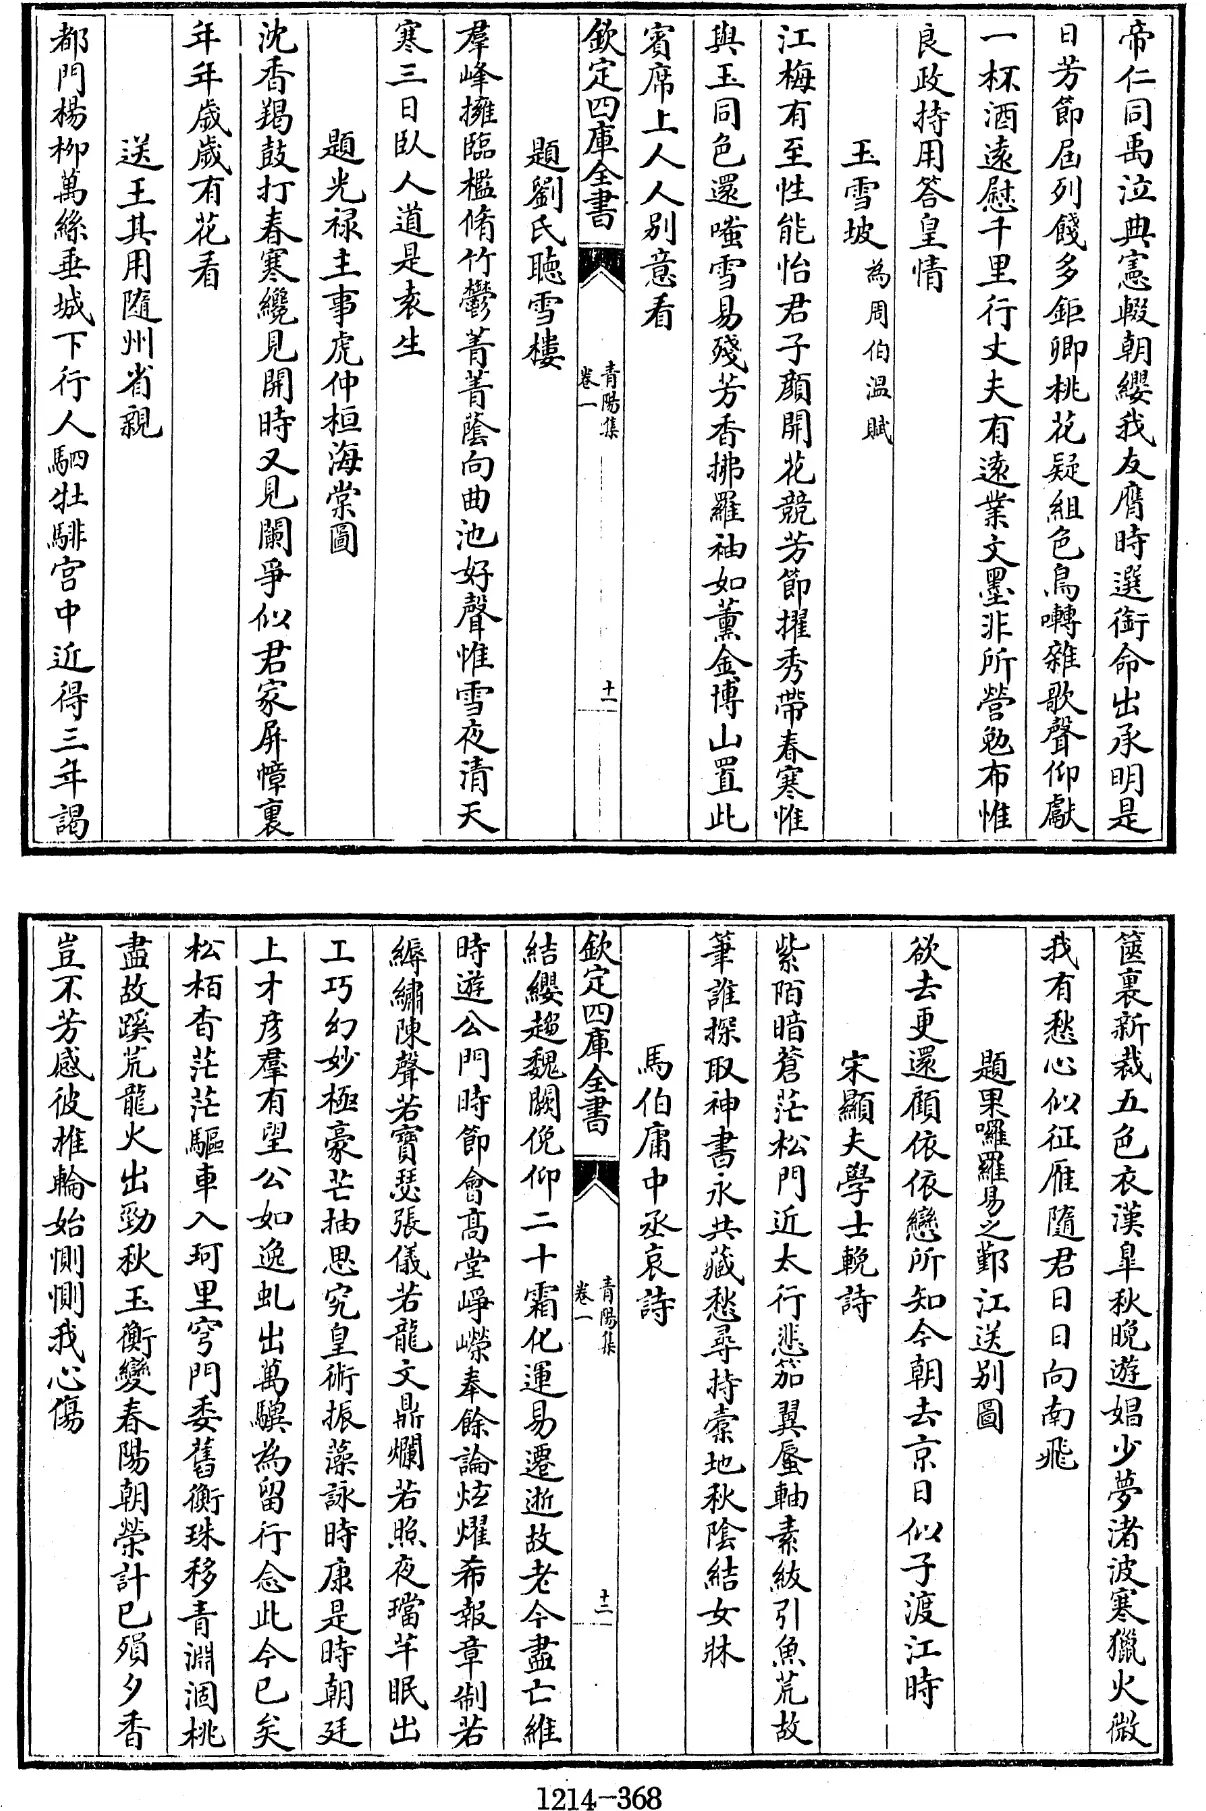 帝仁同禹泣典憲輟朝纓我友膺時選銜命出承明是
日芳節屆列餞多鉅卿桃花疑組色鳥囀雜歌聲仰獻
一杯酒遠慰千里行丈夫有遠業文墨非所營勉布惟
良政持用答皇情
玉雪坡為周伯温賦
江梅有至性能怡君子顔開花競芳節擢秀帶春寒惟
與玉同色還嗤雪易殘芳香拂羅袖如薰金博山置此
賓席上人人别意看
欽定四庫全書
青陽集
卷一
十一
題劉氏聽雪樓
羣峰擁臨檻脩竹鬱菁菁蔭向曲池好聲惟雪夜清天
寒三日臥人道是袁生
題光禄主事虎仲桓海棠圖
沈香羯鼓打春寒纔見開時又見闌爭似君家屏幛裏
年年歲歲有花看
送王其用隨州省親
都門楊柳萬絲垂城下行人駟牡騑宫中近得三年謁
篋裏新裁五色衣漢臯秋晚遊娼少夢渚波寒獵火微
我有愁心似征雁隨君日日向南飛
題果囉羅易之鄞江送别圖
欲去更還顧依依戀所知今朝去京日似子渡江時
宋顯夫學士輓詩
紫陌暗蒼茫松門近太行悲笳翼蜃軸素紱引魚荒故
筆誰探取神書永共藏愁尋持橐地秋陰結女牀
馬伯庸中丞哀詩
欽定四庫全書
青陽集
卷一
十二
結纓趨魏闕俛仰二十霜化運易遷逝故老今盡亡維
時遊公門時節會高堂崢嶸奉餘論炫燿希報章制若
縟繡陳聲若寶瑟張儀若龍文鼎爛若照夜璫芊眠出
工巧幻妙極豪芒抽思究皇術振藻詠時康是時朝廷
上才彦羣有望公如逸虬出萬驥為留行念此今已矣
松栢杳茫茫驅車入珂里穹門委舊衡珠移青淵涸桃
盡故蹊荒龍火出勁秋玉衡變春陽朝榮計已殞夕香
豈不芳感彼椎輪始惻惻我心傷
1214-368